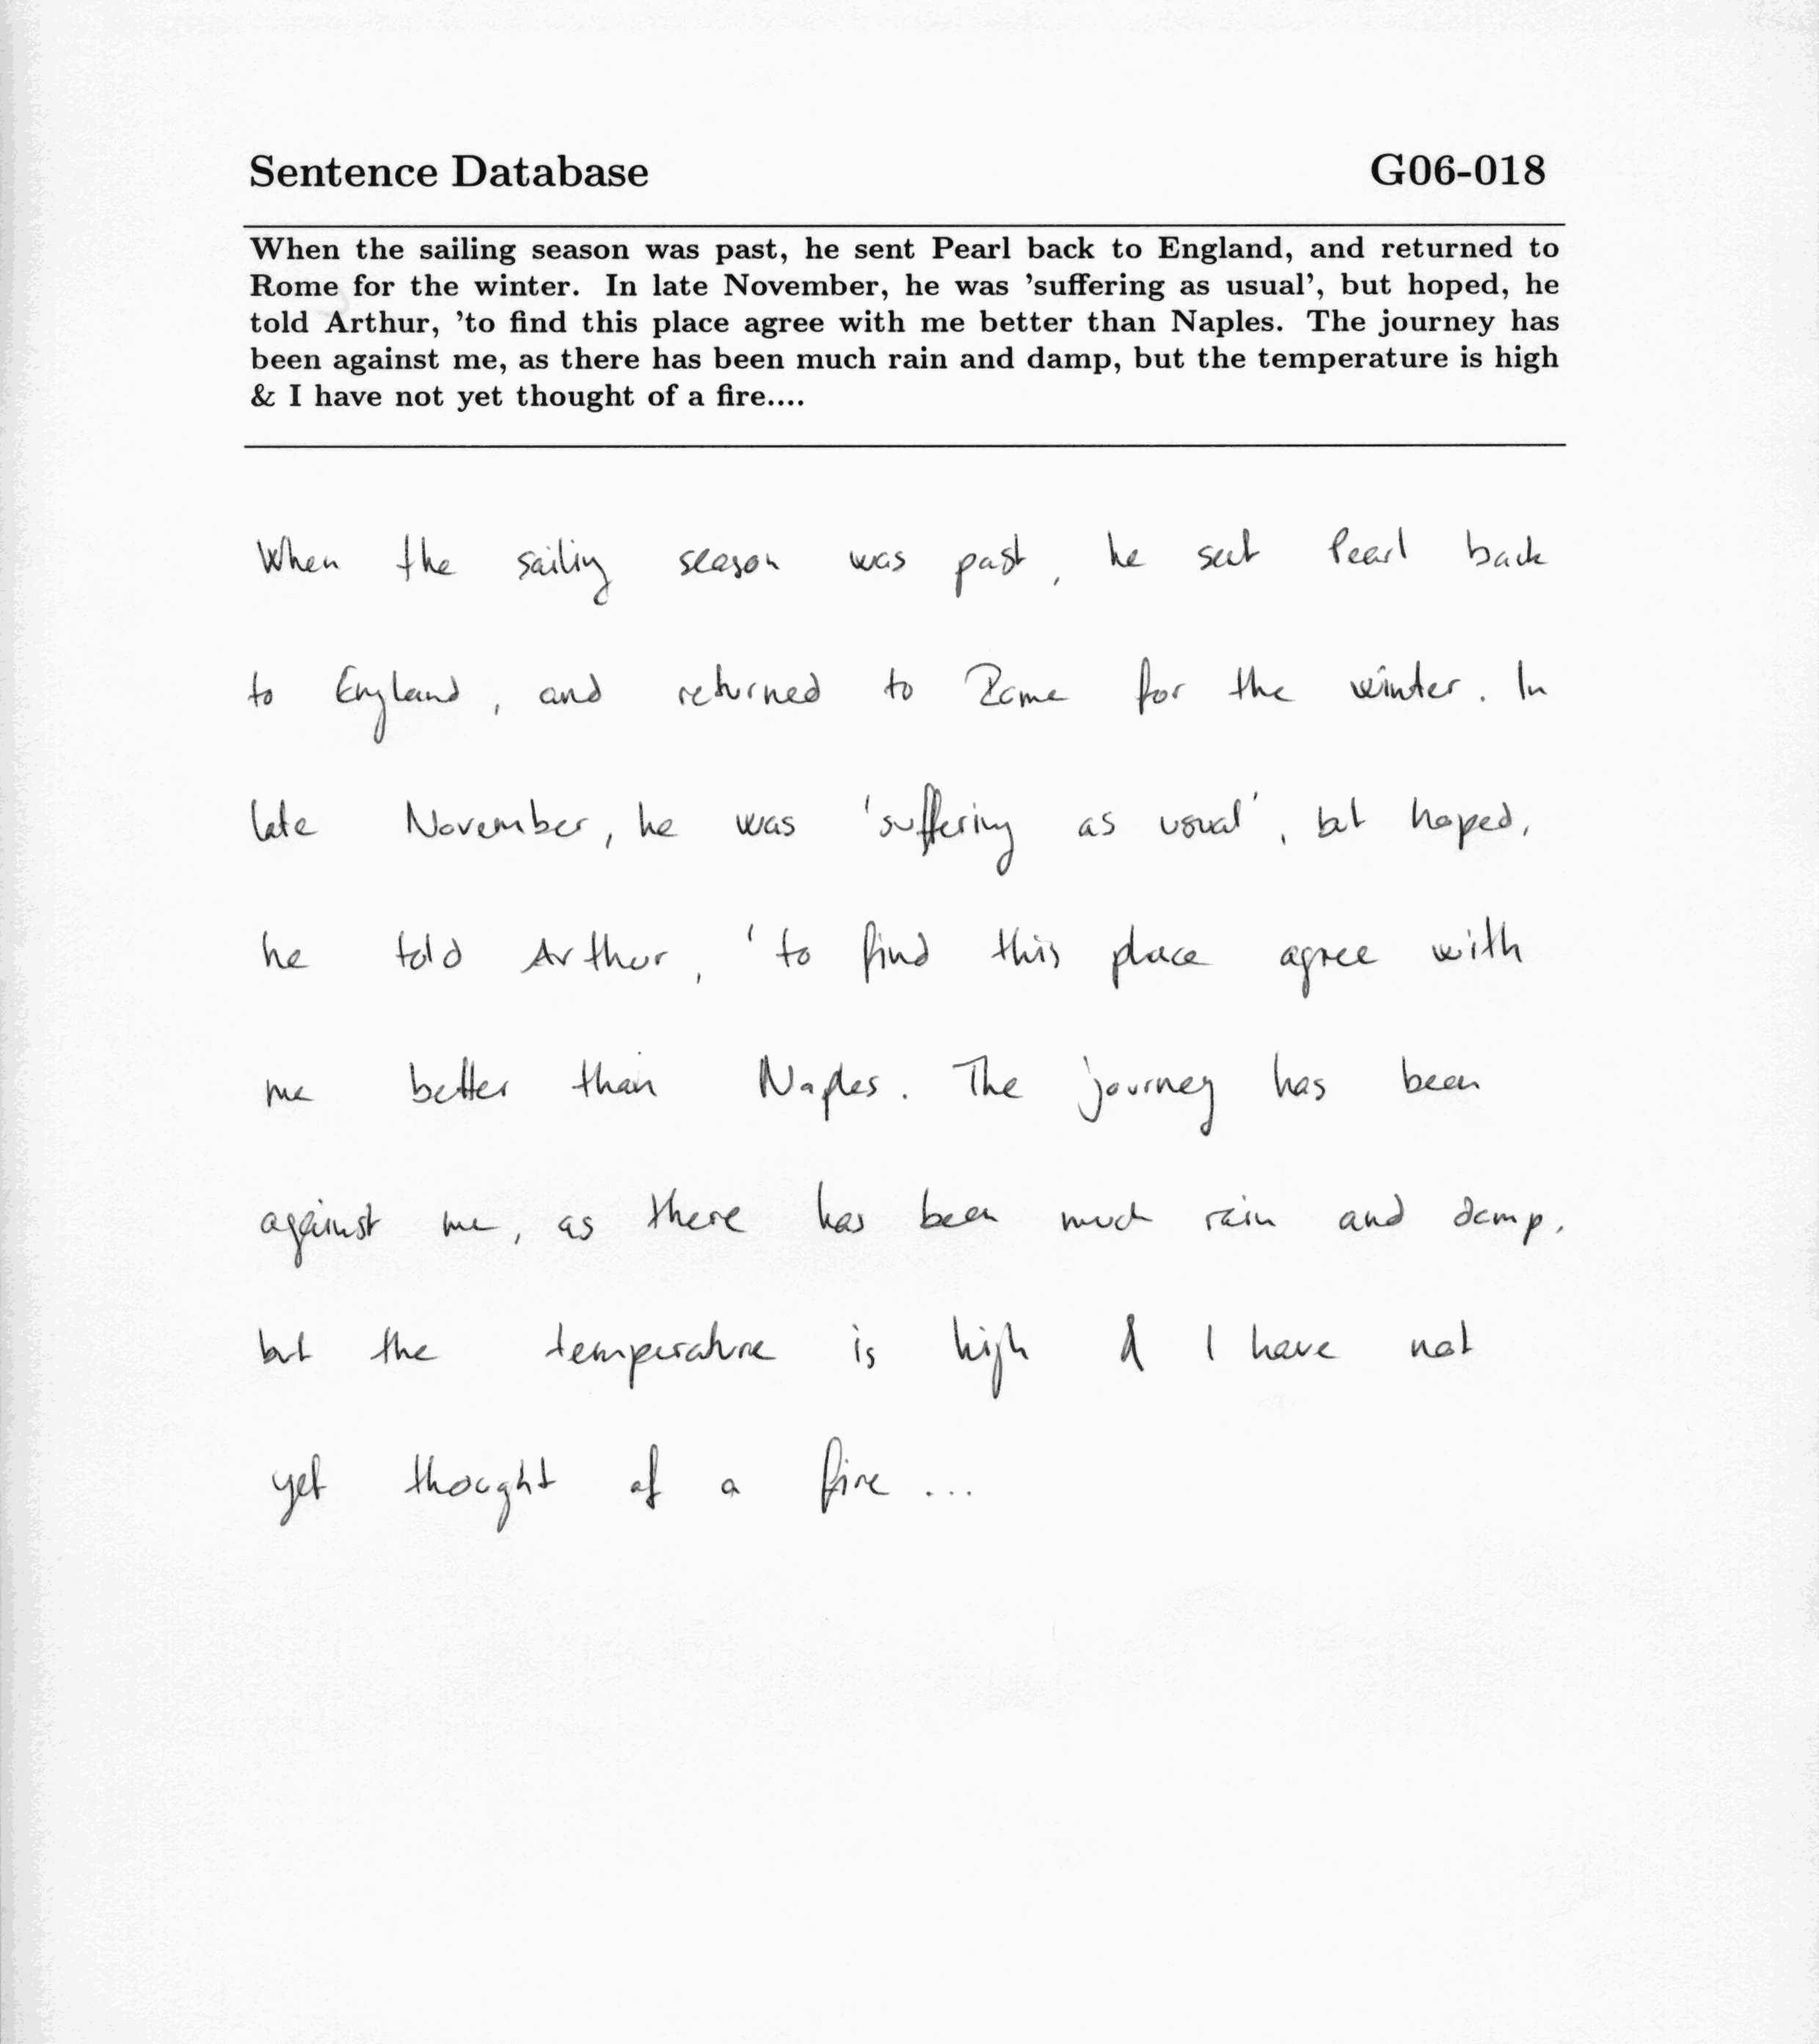 Sentence Database G06-018
When the sailing season was past, he sent Pearl back to England, and returned to
Rome for the winter. In late November, he was 'suffering as usual', but hoped, he
told Arthur, 'to find this place agree with me better than Naples. The journey has
been against me, as there has been much rain and damp, but the temperature is high
& I have not yet thought of a fire....
When the sailing season was past, he sent Pearl back
to England, and returned to Rome for the winter. In
late November, he was 'suffering as usual', but hoped,
he told Arthur, 'to find this place agree with
me better than Naples. The journey has been
against me, as there has been much rain and damp,
but the temperature is high & I have not
yet thought of a fire ...